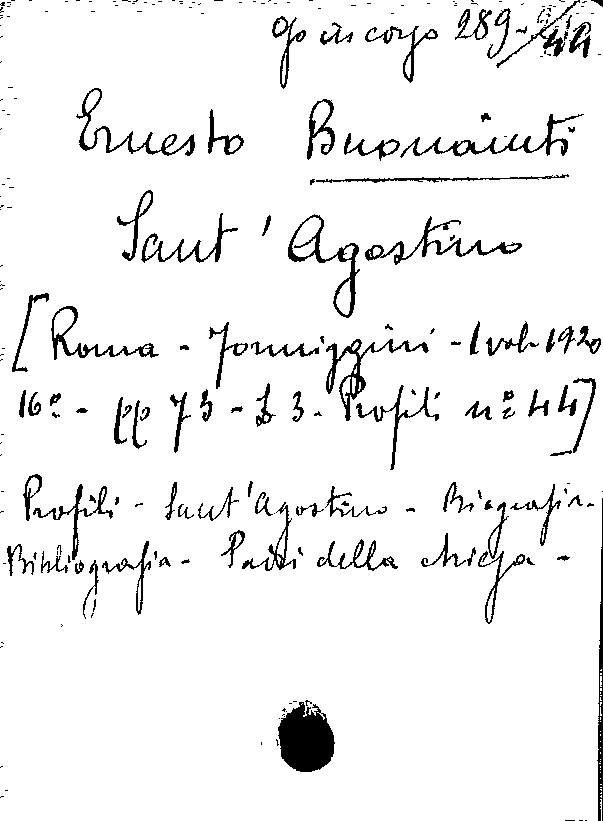 in corso 289-
Ernesto Buonaiuti
Sant'Agostino
[Roma - Formiggini - 1 vol - 1920
16º - pp 73 - £ 3 - Profili nº 44]
Profili - Sant'Agostino - Biografia -
Bibliografia - Padri della chiesa -